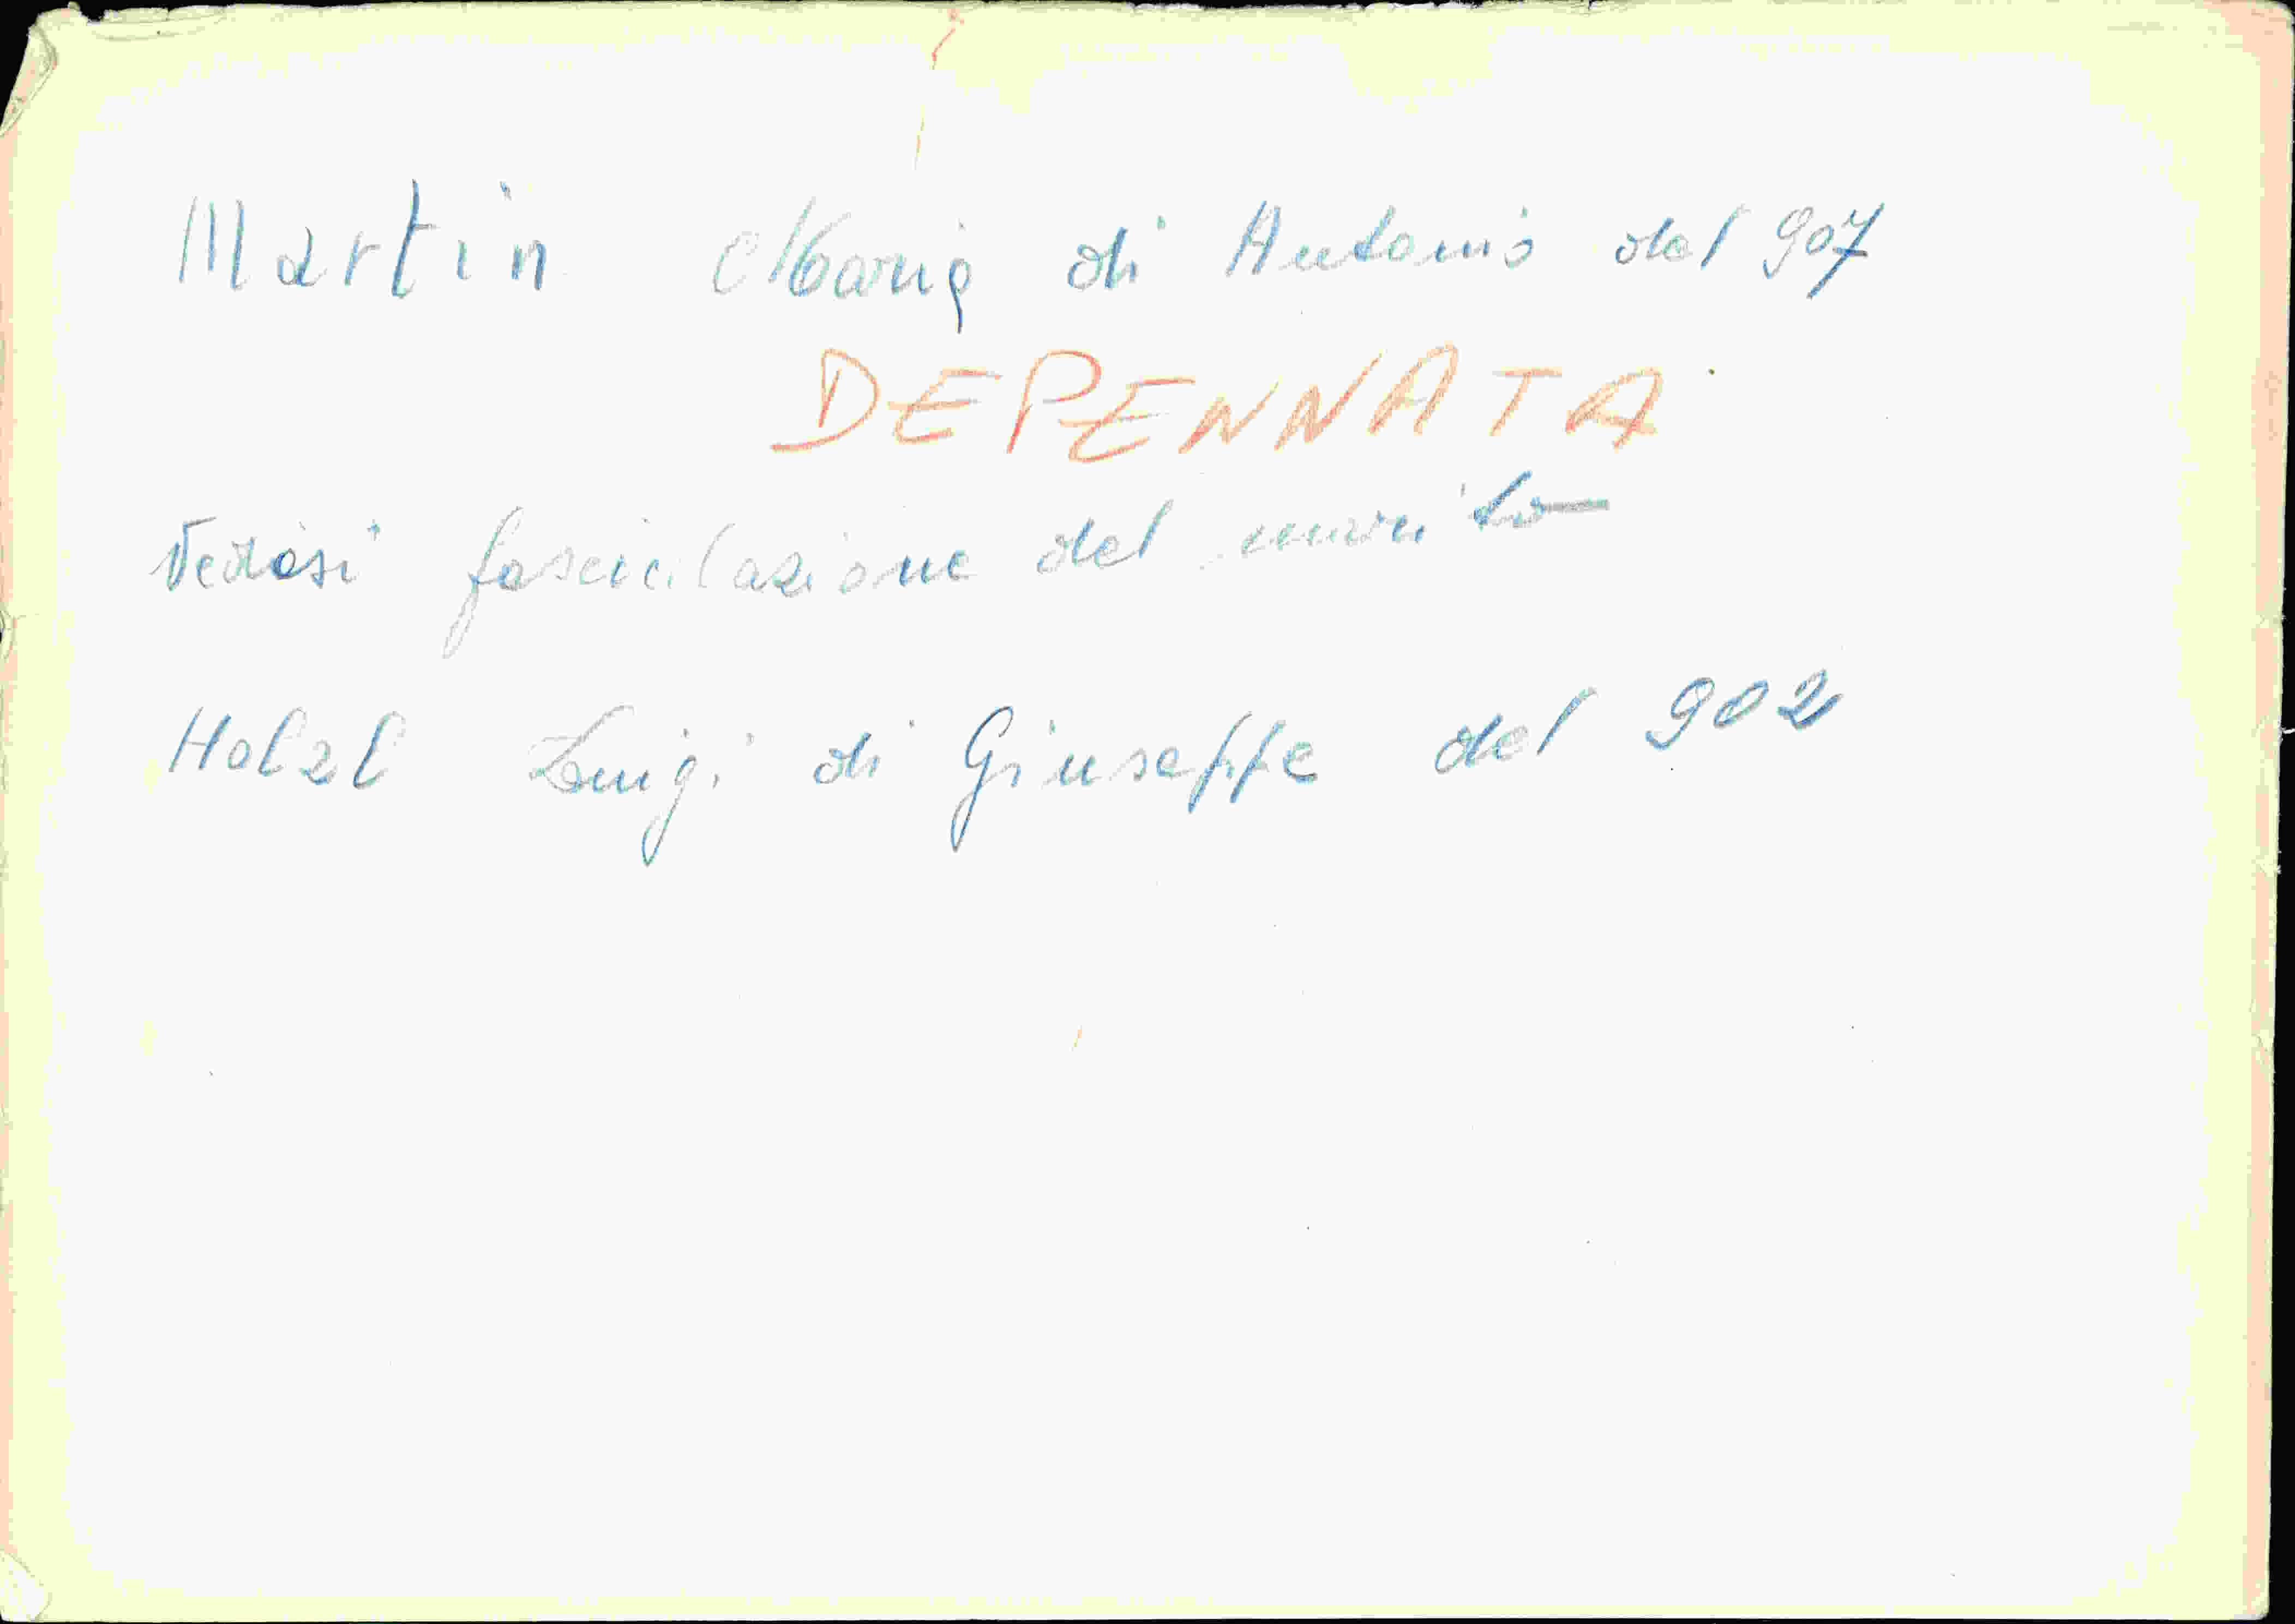 Martin Maria di Antonio del 907
DEPENNATA
Vedasi fascicolazione del marito
Holzl Luigi di Giuseppe del 902